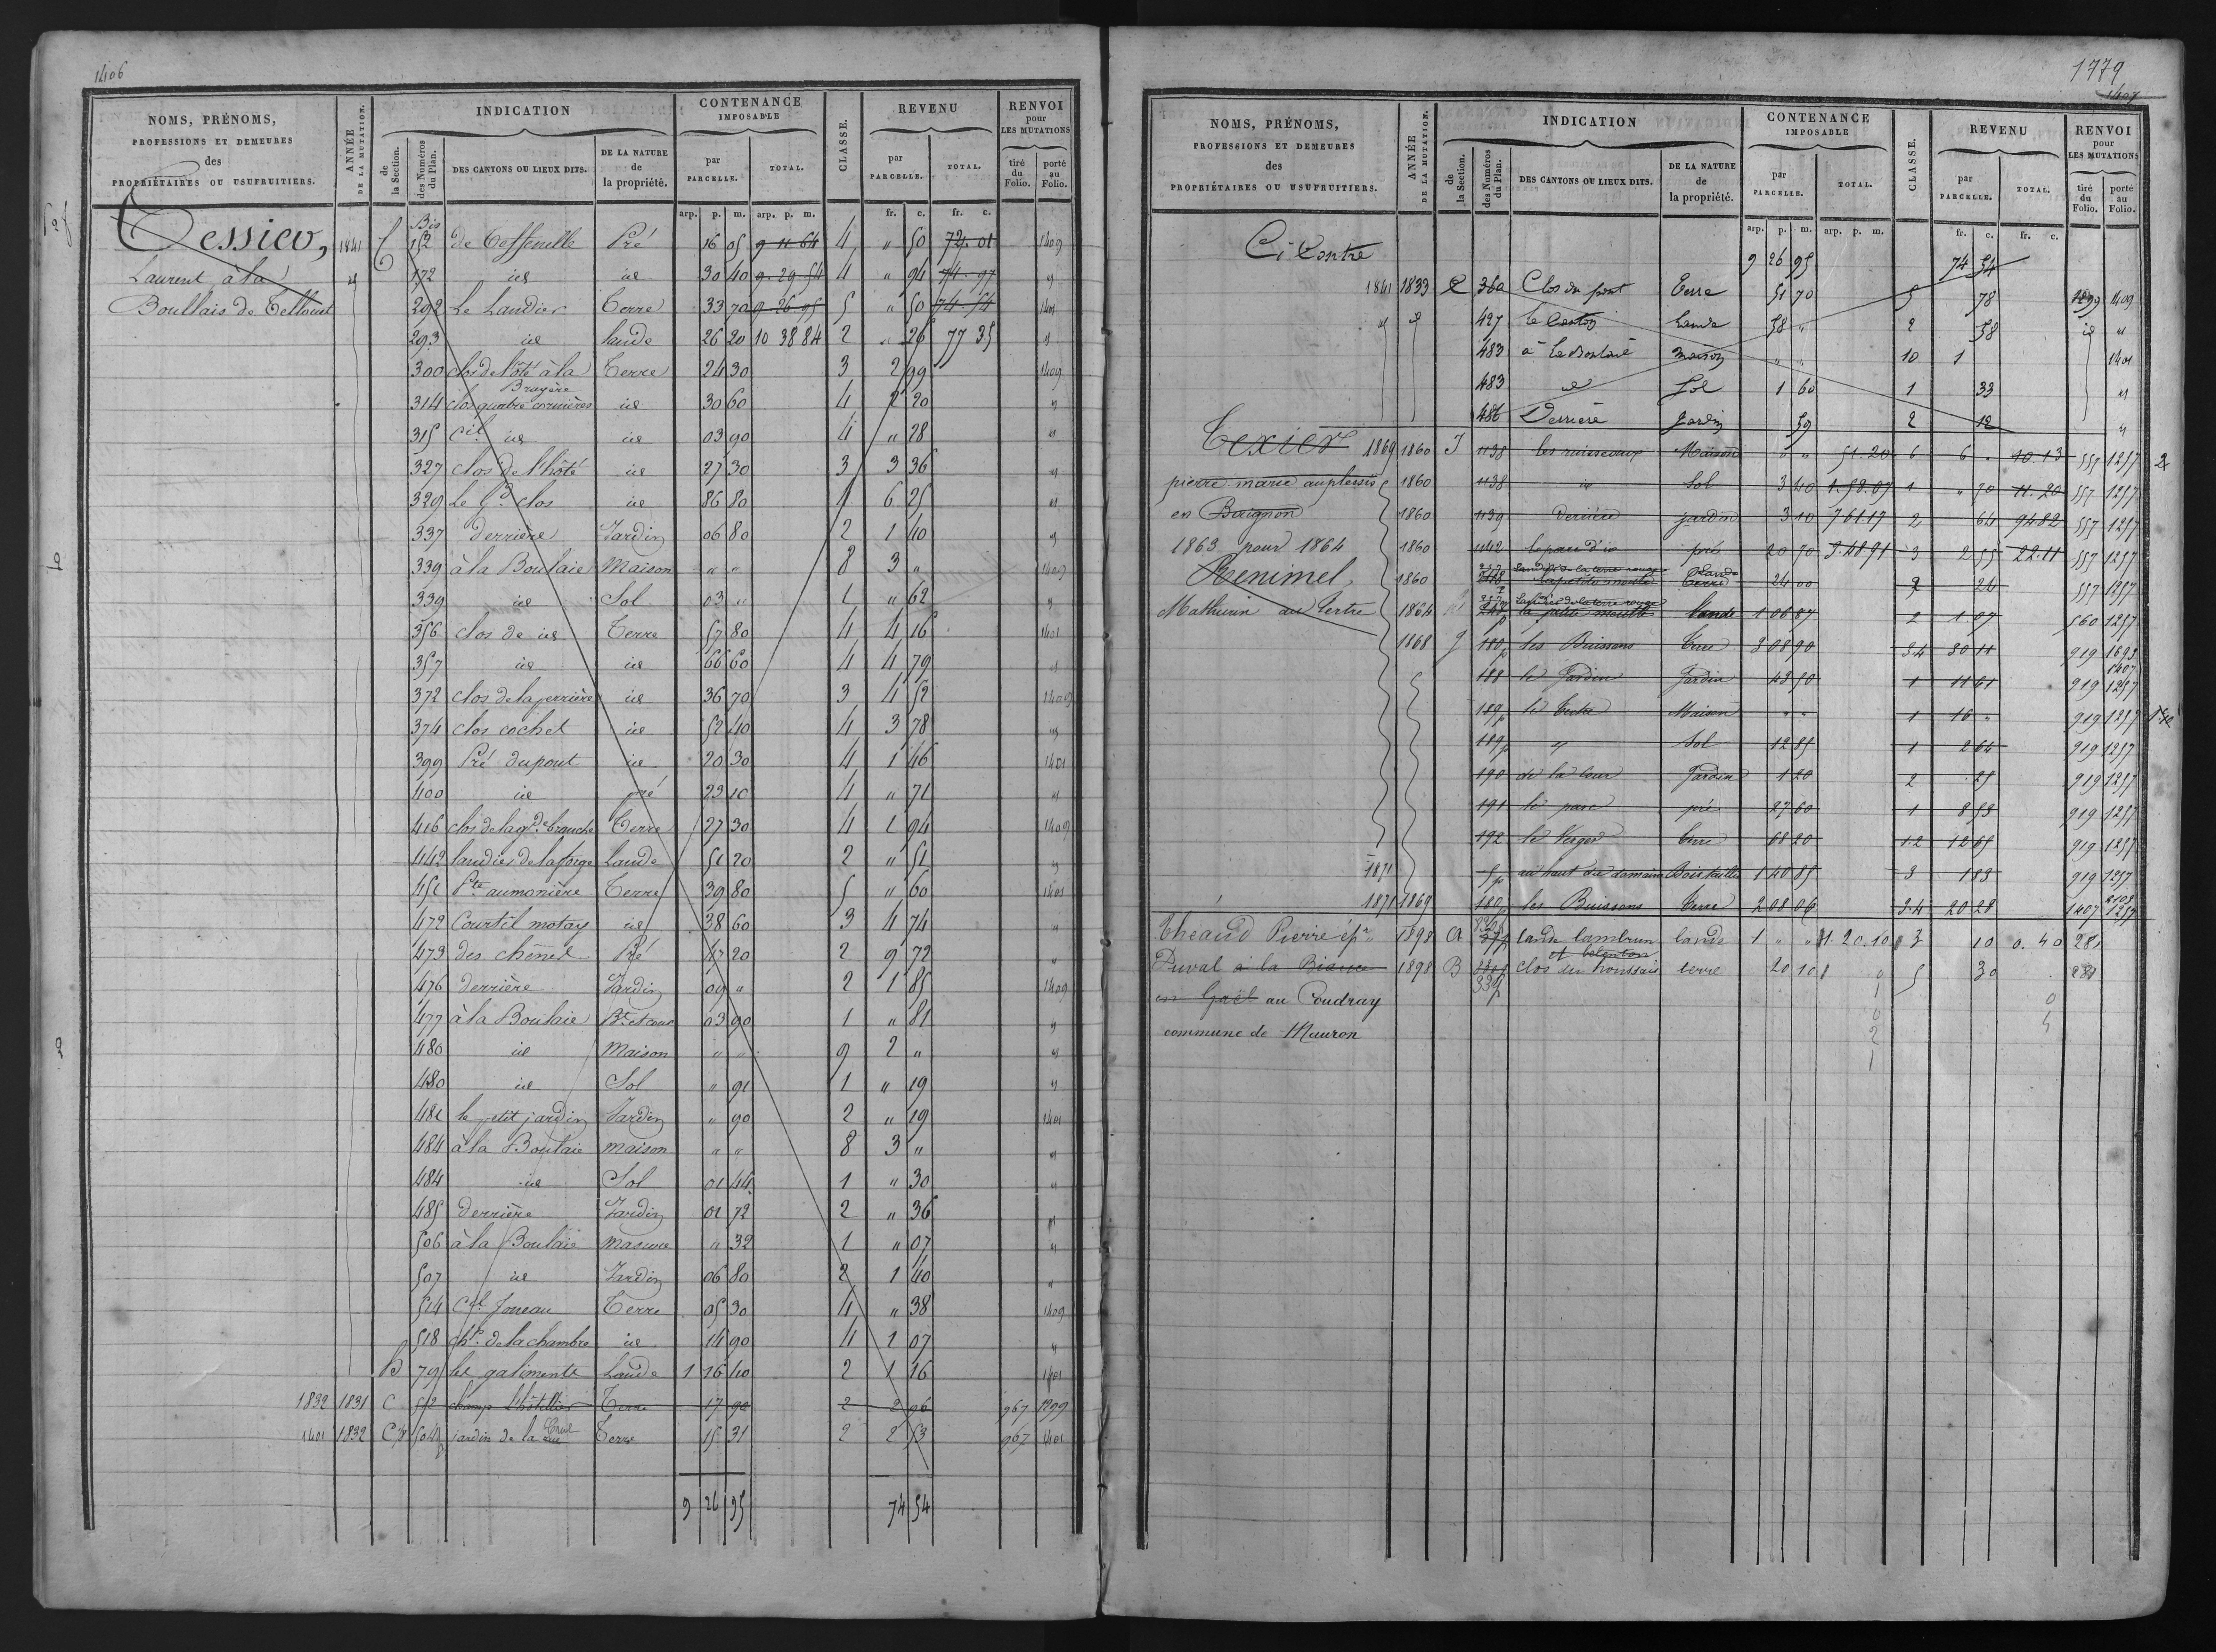 1406
NOMS, PRÉNOMS,
PROFESSIONS ET DEMEURES
des
PROPRIÉTAIRES OU USUFRUITIERS.
ANNÉE
DE LA MUTATION.
INDICATION
de
la Section.
des Numéros
du Plan.
DES CANTONS OU LIEUX DITS.
DE LA NATURE
de
la propriété.
CONTENANCE
IMPOSABLE
par
PARCELLE.
TOTAL.
CLASSE.
REVENU
par
PARCELLE.
TOTAL.
RENVOI
pour
LES MUTATIONS
tiré
du
Folio.
porté
au
Folio.
arp. p. m. arp. p. m. fr. c. fr. c.
Tessier,
Laurent à la
Boullais de Telhouet
Bis
1841 152 Pré 16 05 9 11 64 4 " 50 72.01 1409
172 id id 30 40 9.29.54 4 " 94 74.97 "
292 Le Landier Terre 33 70 9 26 95 5 " 50 74.54 1401
293 id lande 26 20 10 38 84 2 " 26 77 35 "
300 clos de l'hôté à la Terre 24 30 3 2 99 1409
Bruyère
314 clos id 30 60 4 2 20 "
315 id id 03 90 4 " 28 "
327 clos de l'hôté id 27 30 3 3 36 "
329 Le Gd clos id 86 80 1 6 25 "
337 derrière Jardin 06 80 2 1 40 "
339 à la Boulaie Maison " " 8 3 " 1409
339 id Sol 03 " 1 " 62 "
356 clos de id Terre 57 80 4 4 16 1401
357 id id 66 60 4 4 79 "
372 clos de la perrière id 36 70 3 4 52 1409
374 clos cochet id 52 40 4 3 78 "
399 Pré dupont id 20 30 4 1 46 1401
400 id pré 23 10 4 " 71 "
416 clos de la gde branche Terre 27 30 4 1 94 1409
442 landier de la forge Lande 51 20 2 " 51 "
451 Pte aumonière Terre 39 80 5 " 60 1401
472 Courtil motay id 38 60 3 4 74 "
473 des chênes Pré 47 20 2 9 72 "
476 derrière Jardin 09 " 2 1 85 1409
477 à la Boulaie Bt et cour 03 90 1 " 81 "
480 id Maison " " 9 2 " "
480 id Sol " 91 1 " 19 "
481 le petit jardin Jardin " 90 2 " 19 1401
484 à la Boulaie maison " " 8 3 " "
484 id Sol 01 44 1 " 30 "
485 derrière Jardin 01 72 2 " 36 "
506 à la Boulaie masure " 32 1 " 07 "
507 id Jardin 06 80 2 1 40 "
514 Ctil Joneau Terre 05 30 4 " 38 1409
518 chp. de la chambre id 14 90 4 1 07 "
D 795 les galiments Lande 1 16 40 2 1 16 1401
1832 1831 C 512 champ l'hôtellier Terre 17 90 2 2 96 967 1399
1401 1832 C 504p jardin de la Terre 15 31 2 2 53 967 1401
9 26 95 74 54
1779
1407
NOMS, PRÉNOMS,
PROFESSIONS ET DEMEURES
des
PROPRIÉTAIRES OU USUFRUITIERS.
ANNÉE
DE LA MUTATION.
INDICATION
de
la Section.
des Numéros
du Plan.
DES CANTONS OU LIEUX DITS.
DE LA NATURE
de
la propriété.
CONTENANCE
IMPOSABLE
par
PARCELLE.
TOTAL.
CLASSE.
REVENU
par
PARCELLE.
TOTAL.
RENVOI
pour
LES MUTATIONS
tiré
du
Folio.
porté
au
Folio.
arp. p. m. arp. p. m. fr. c. fr. c.
Ci Contre 9 26 95 74 54
1841 1833 C 360 Clos du pont Terre 51 70 5 78 1399 1409
" id 427 Lande 58 " 2 58 id "
483 à la Boulaie maison " " 10 1 1401
483 id Sol 1 60 1 33 "
486 Derriere Jardin 59 2 12 "
Texier 1869 1860 J 1138 les ruisseaux Maison " " 51.20 6 6 " 10.13 557 1257 2
pierre marie auplessis 1860 1138 id Sol 3 40 1.58.07 1 " 70 11.20 557 1257
en Buignon 1860 1139 derrière jardin 3 10 7 61.17 2 64 94 82 557 1257
1863 pour 1864 1860 1142 pré 20 70 3.48.91 3 2 55 22.11 557 1257
Henimel, 1860 24 00 2 24 557 1257
Mathurin au Tertre 1864 lande 1 06 87 2 1 07 560 1257
1868 J 180p les Buissons Terre 3 08 90 3 4 30 11 919 1693
1407
188 le Jardin Jardin 43 50 1 11 61 919 1257
189p le tertre Maison " " 1 16 " 919 1257
189p " Sol 12 85 1 2 64 919 1257
190 de la Cour Jardin 1 20 2 25 919 1257
191 le parc pré 27 60 1 8 53 919 1257
192 le Verger terre 68 20 1 2 12 65 919 1257
1871 5p au haut du domaine Bois taillis 1 40 85 3 1 83 919 1257
1871 1869 180p les Buissons Terre 2 08 06 3.4 20 28 1407 1257
Theaud Pierre épx 1898 A lande lambrun lande 1 " " 1.20.10 3 10 0.40 281
Duval à la Biance 1898 B clos du houssais terre 20 10 5 30 281
en Gaël au Coudray
commune de Mauron